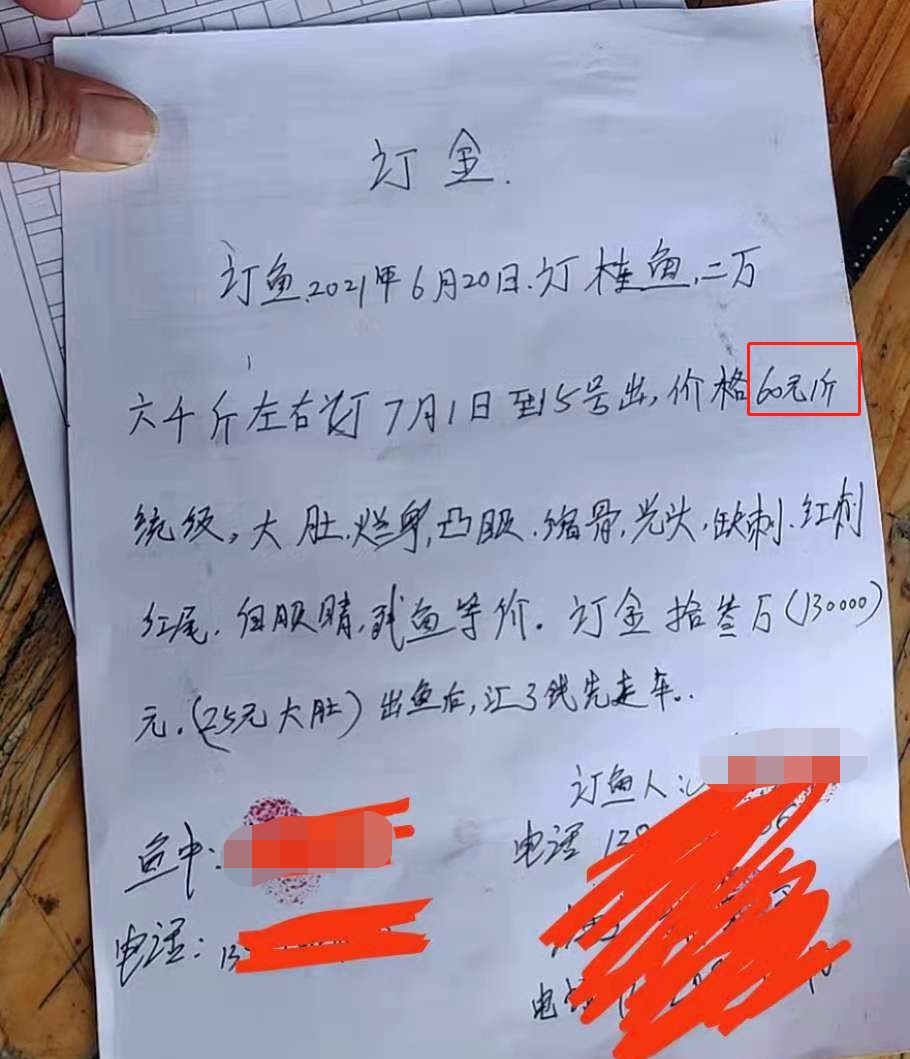 订金.
订鱼.2021年6月20日.订桂鱼,二万
六千斤左右 订7月1日至15号出,价格60元1斤
统级,大肚.烂身,凸眼.缩骨,光头,缺刺.红刺
红尾.白眼睛,残鱼等价.订金拾叁万(130000)
元.(25元大肚)出鱼后,汇了钱先走车.
订鱼人:
鱼中:
电话 13
电话:13
电话